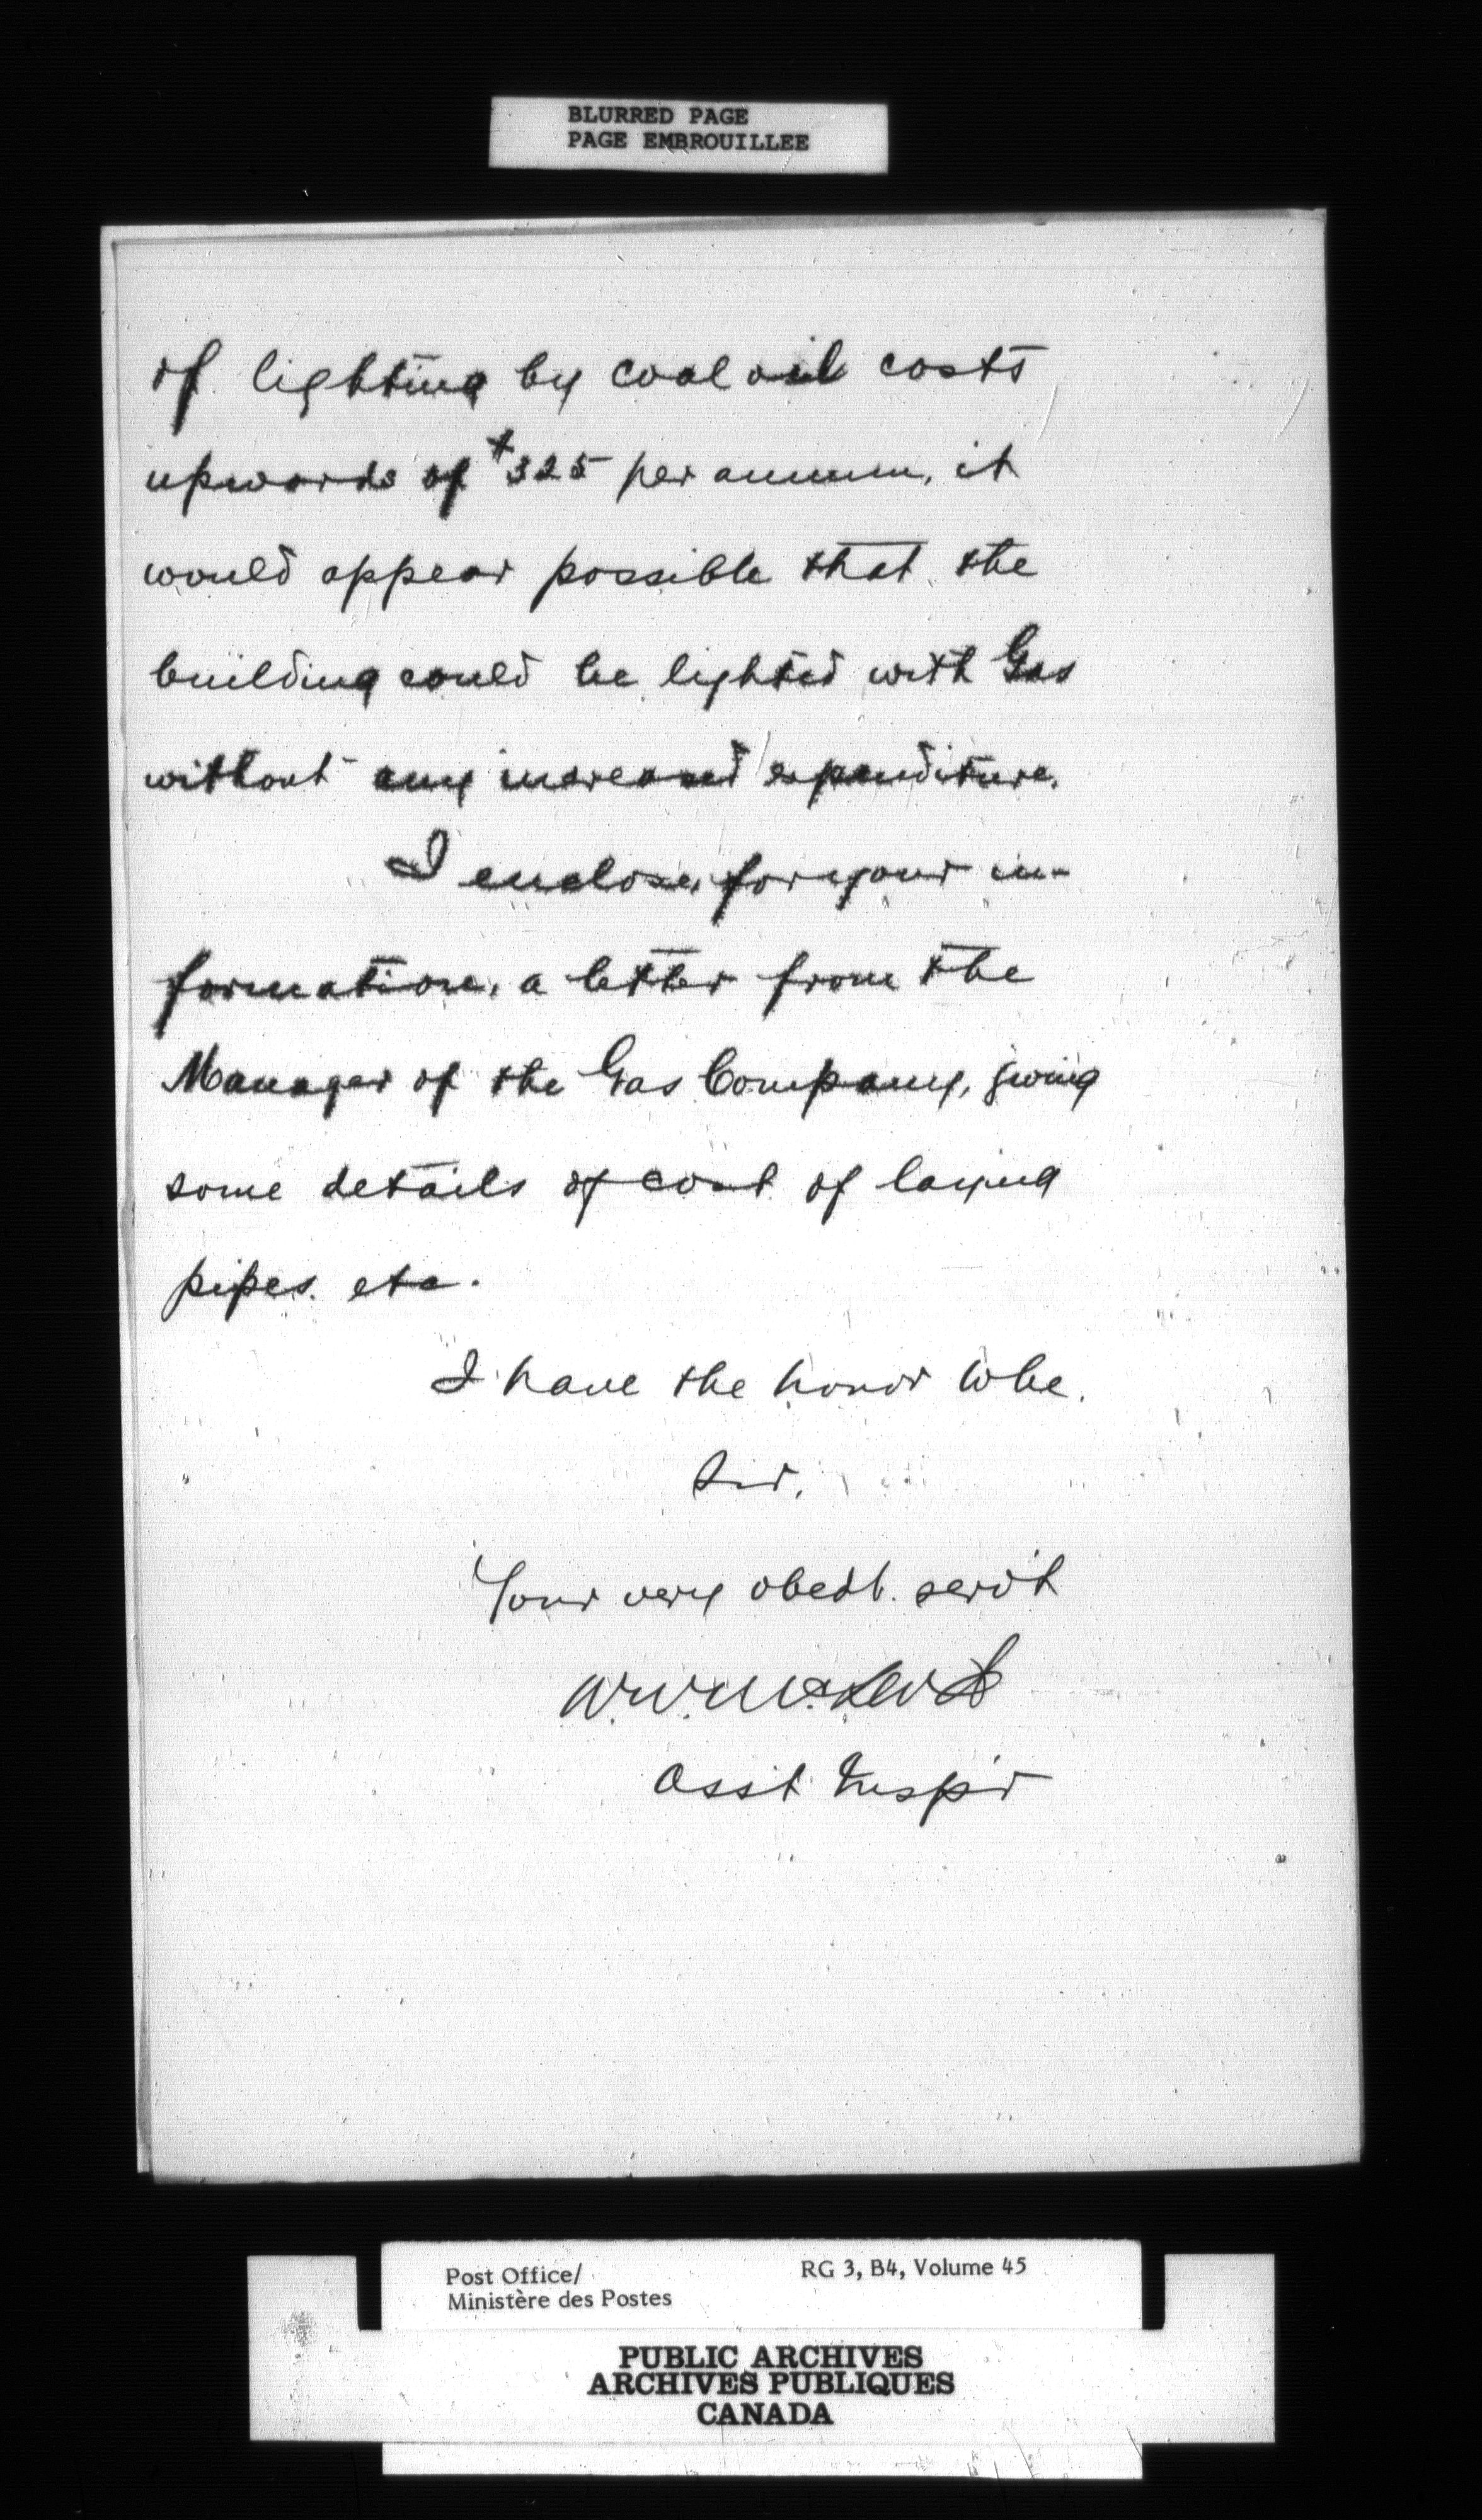 BLURRED PAGE
PAGE EMBROUILLEE
of lighting by coal oil costs
upwards of $325 per annum, it
would appear possible that the
building could be lighted with Gas
without any increased expenditure.
I enclose, for your in-
formation, a letter from the
Manager of the Gas Company, giving
some details of cost of laying
pipes. etc.
I have the honor to be.
Sir,
Your very obedt. serv't
Asst Insp'r
Post Office/
Ministère des Postes
RG 3, B4, Volume 45
PUBLIC ARCHIVES
ARCHIVES PUBLIQUES
CANADA